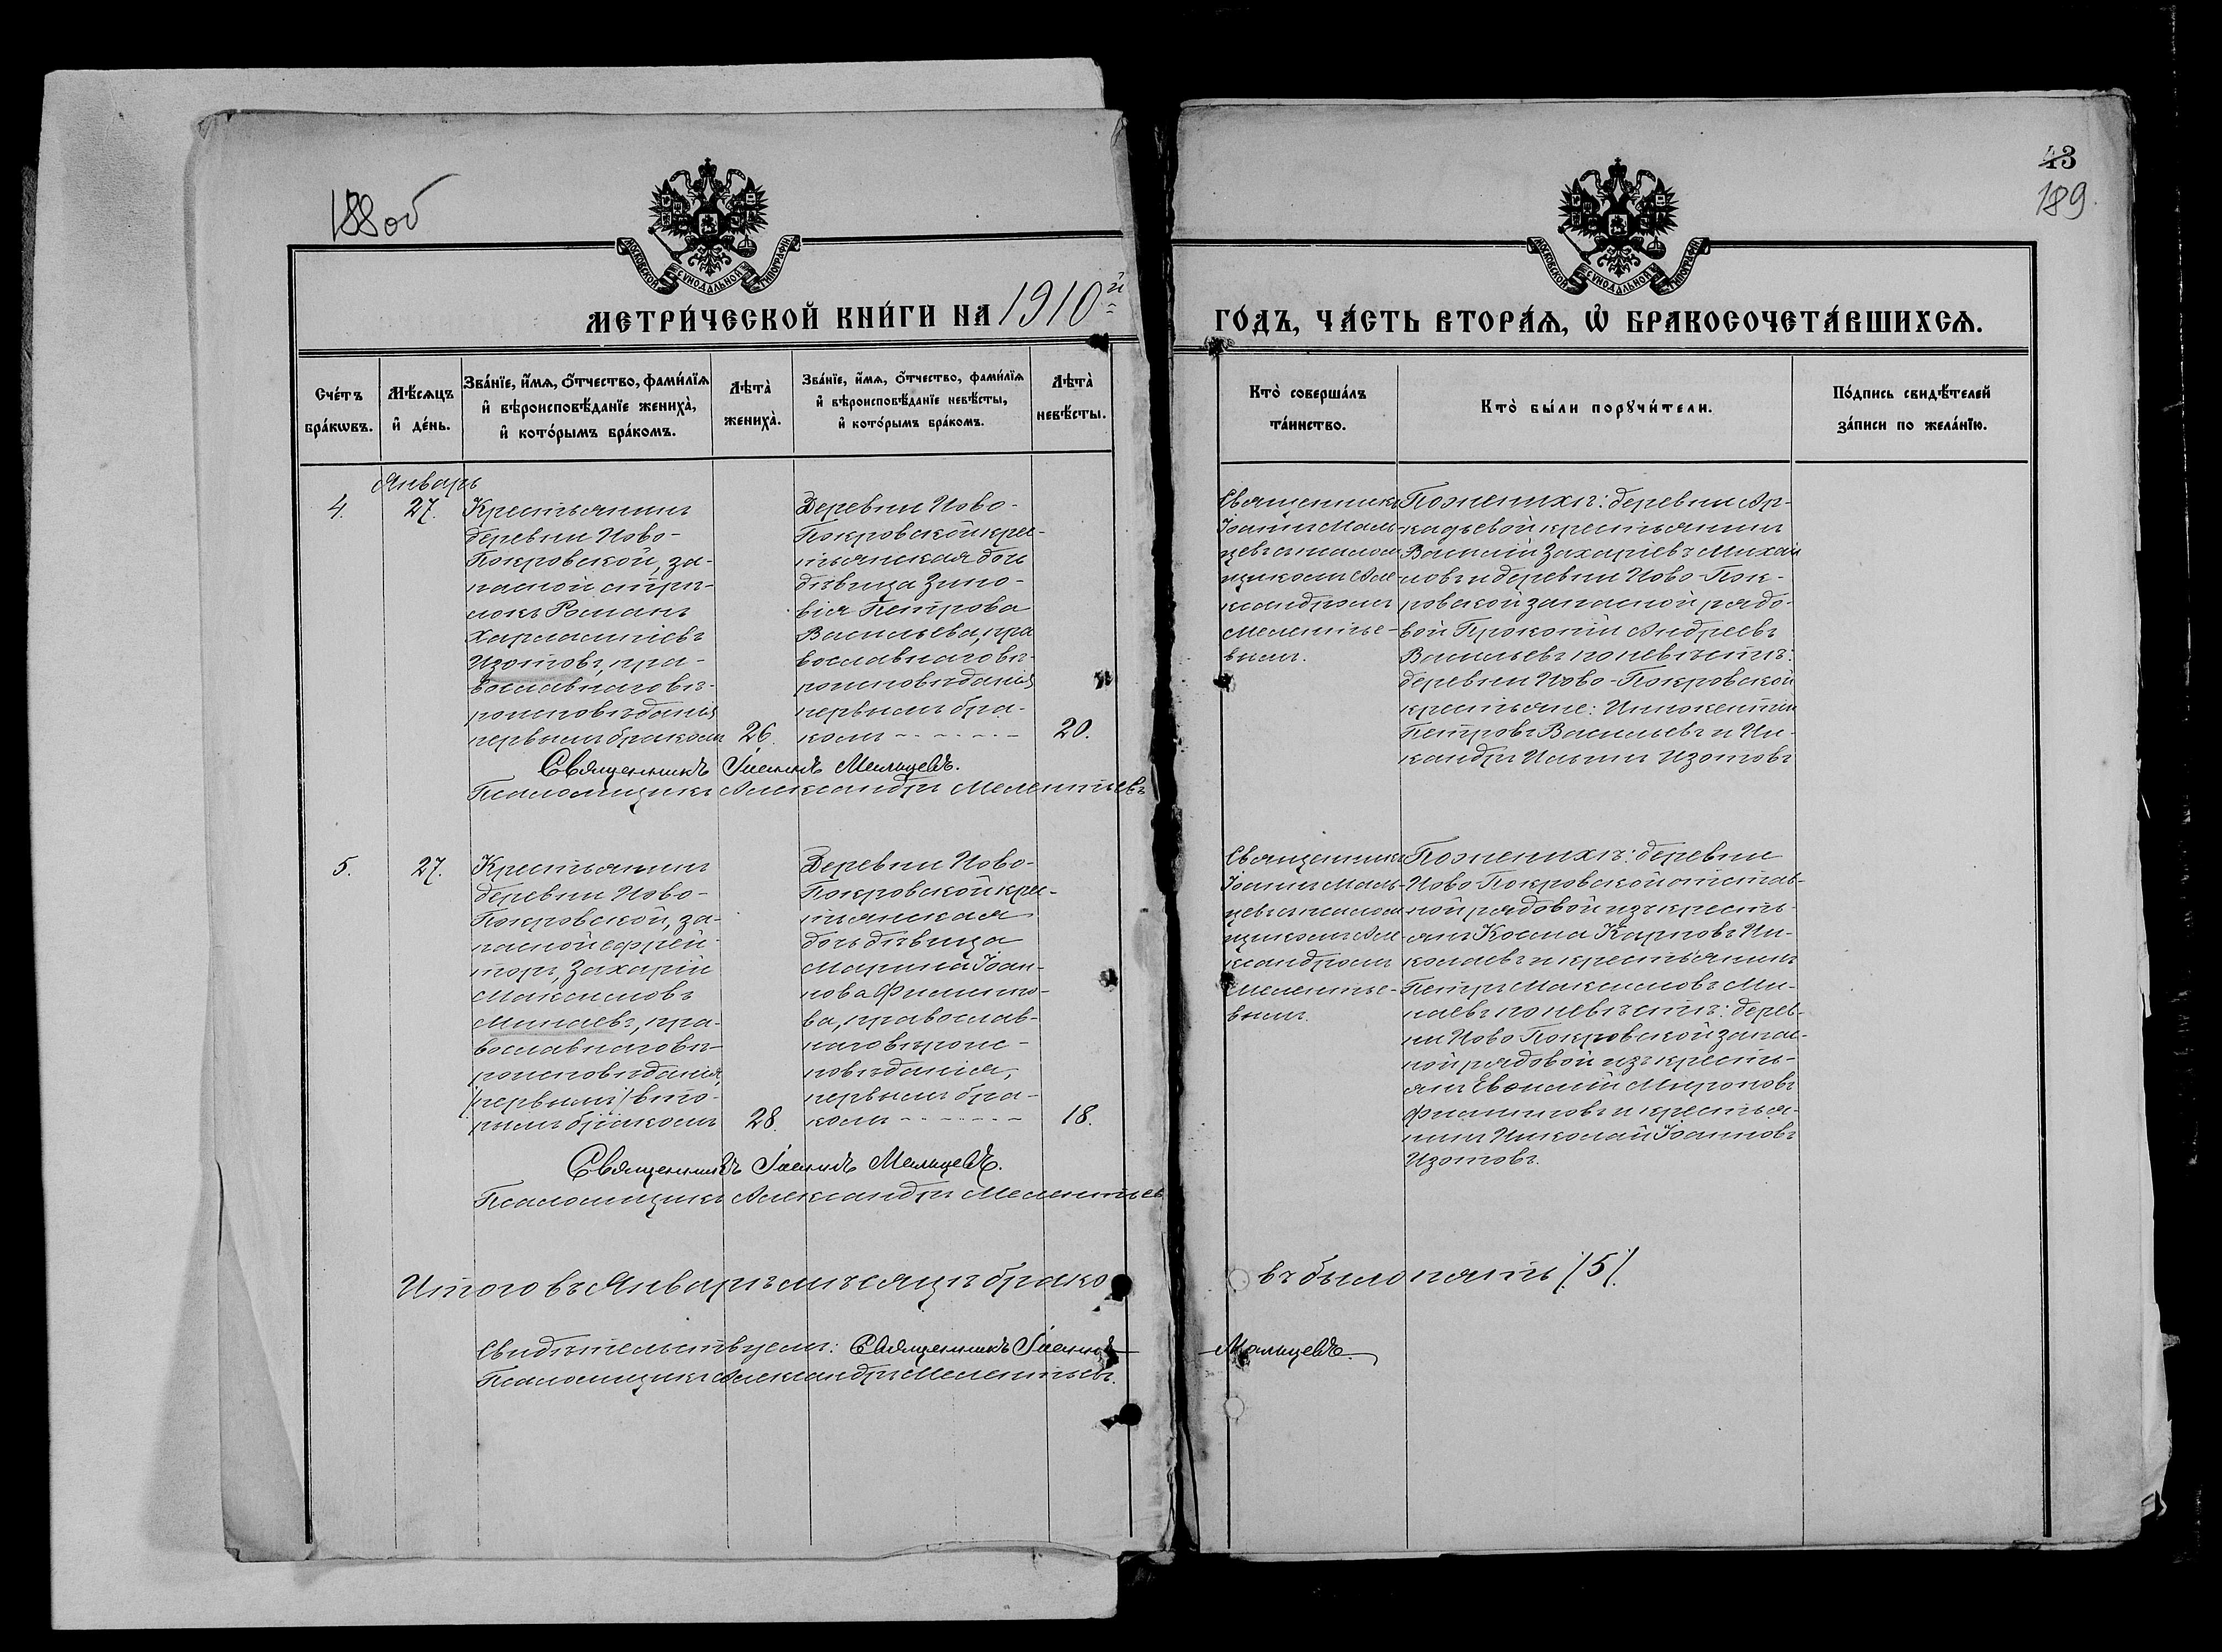 188об
43
189
МОСКОВСКОЙ СѴНОДАЛЬНОЙ ТИПОГРАФІИ
МОСКОВСКОЙ СѴНОДАЛЬНОЙ ТИПОГРАФІИ
МЕТРИ́ЧЕСКОЙ КНИ́ГИ НА 1910й
ГО́ДЪ, ЧА́СТЬ ВТОРА́Ѧ, Ѽ БРАКОСОЧЕТА́ВШИХСѦ.
Сче́тъ
бра́кѡвъ.
Мѣ́сѧцъ
и҆ де́нь.
Зва́нїе, и҆́мѧ, ѻ҆́тчество, фами́лїѧ
и҆ вѣроисповѣ́данїе жениха̀,
и҆ кото́рымъ бра́комъ.
Лѣта̀
жениха̀.
Зва́нїе, и҆́мѧ, ѻ҆́тчество, фами́лїѧ
и҆ вѣроисповѣ́данїе невѣ́сты,
и҆ кото́рымъ бра́комъ.
Лѣта̀
невѣ́сты.
Кто̀ соверша́лъ
та́инство.
Кто̀ бы́ли порꙋчи́тели.
По́дпись свидѣ́телей
за́писи по жела́нїю.
Январь
4.
27.
Крестьянинъ
деревни Ново-
Покровской, за-
пасной стрѣ-
локъ Романъ
Харлампіевъ
Изотовъ, пра-
вославнаго вѣ-
роисповѣданія
первымъ бракомъ
26.
Деревни Ново-
Покровской кре-
стьянская дочь
дѣвица Зино-
вія Петрова
Васильева, пра
вославнаго вѣ-
роисповѣданія
первымъ бра-
комъ
20.
Священникъ Іоаннъ Мальцевъ.
Псаломщикъ Александръ Мелентьевъ
Священникъ
Іоаннъ Маль-
цевъ с псалом
щикомъ Але-
ксандромъ
Мелентье-
вымъ.
По женихѣ: деревни Ар-
кадьевой крестьянинъ
Василій Захаріевъ Михай
ловъ и деревни Ново-Пок-
ровской запасной рядо-
вой Прокопій Андреевъ
Васильевъ по невѣстѣ:
деревни Ново-Покровской
крестьяне: Иннокентій
Петровъ Васильевъ и Ни-
кандръ Ильинъ Изотовъ
5.
27.
Крестьянинъ
деревни Ново-
Покровской, за-
пасной ефрей-
торъ, Захарій
Максимовъ
Минаевъ, пра-
вославнаго вѣ-
роисповѣданія,
/первымъ/ вто-
рымъ бракомъ
28.
Деревни Ново-
Покровской кре-
стьянская
дочь дѣвица
Марина Іоан-
нова Филиппо-
ва, православ-
наго вѣроис-
повѣданія,
первымъ бра-
комъ
18.
Священникъ Іоаннъ Мальцевъ.
Псаломщикъ Александръ Мелентьев
Священникъ
Іоаннъ Маль-
цевъ с псалом
щикомъ Але-
ксандромъ
Мелентье-
вымъ.
По женихѣ: деревни
Ново Покровской отстав-
ной рядовой изъ кресть-
янъ Косма Карповъ Ни-
колаевъ и крестьянинъ
Петръ Максимовъ Ми-
наевъ по невѣстѣ: дерев-
ни Ново Покровской запас-
ной рядовой изъ кресть-
янъ Евсигній Мироновъ
Филипповъ и крестья-
нинъ Николай Іоанновъ
Изотовъ.
Итого въ Январѣ мѣсяцѣ брако
въ было пять /5/.
Свидѣтельствуемъ: Священникъ Іоаннъ
Мальцевъ.
Псаломщикъ Александръ Мелентьевъ.